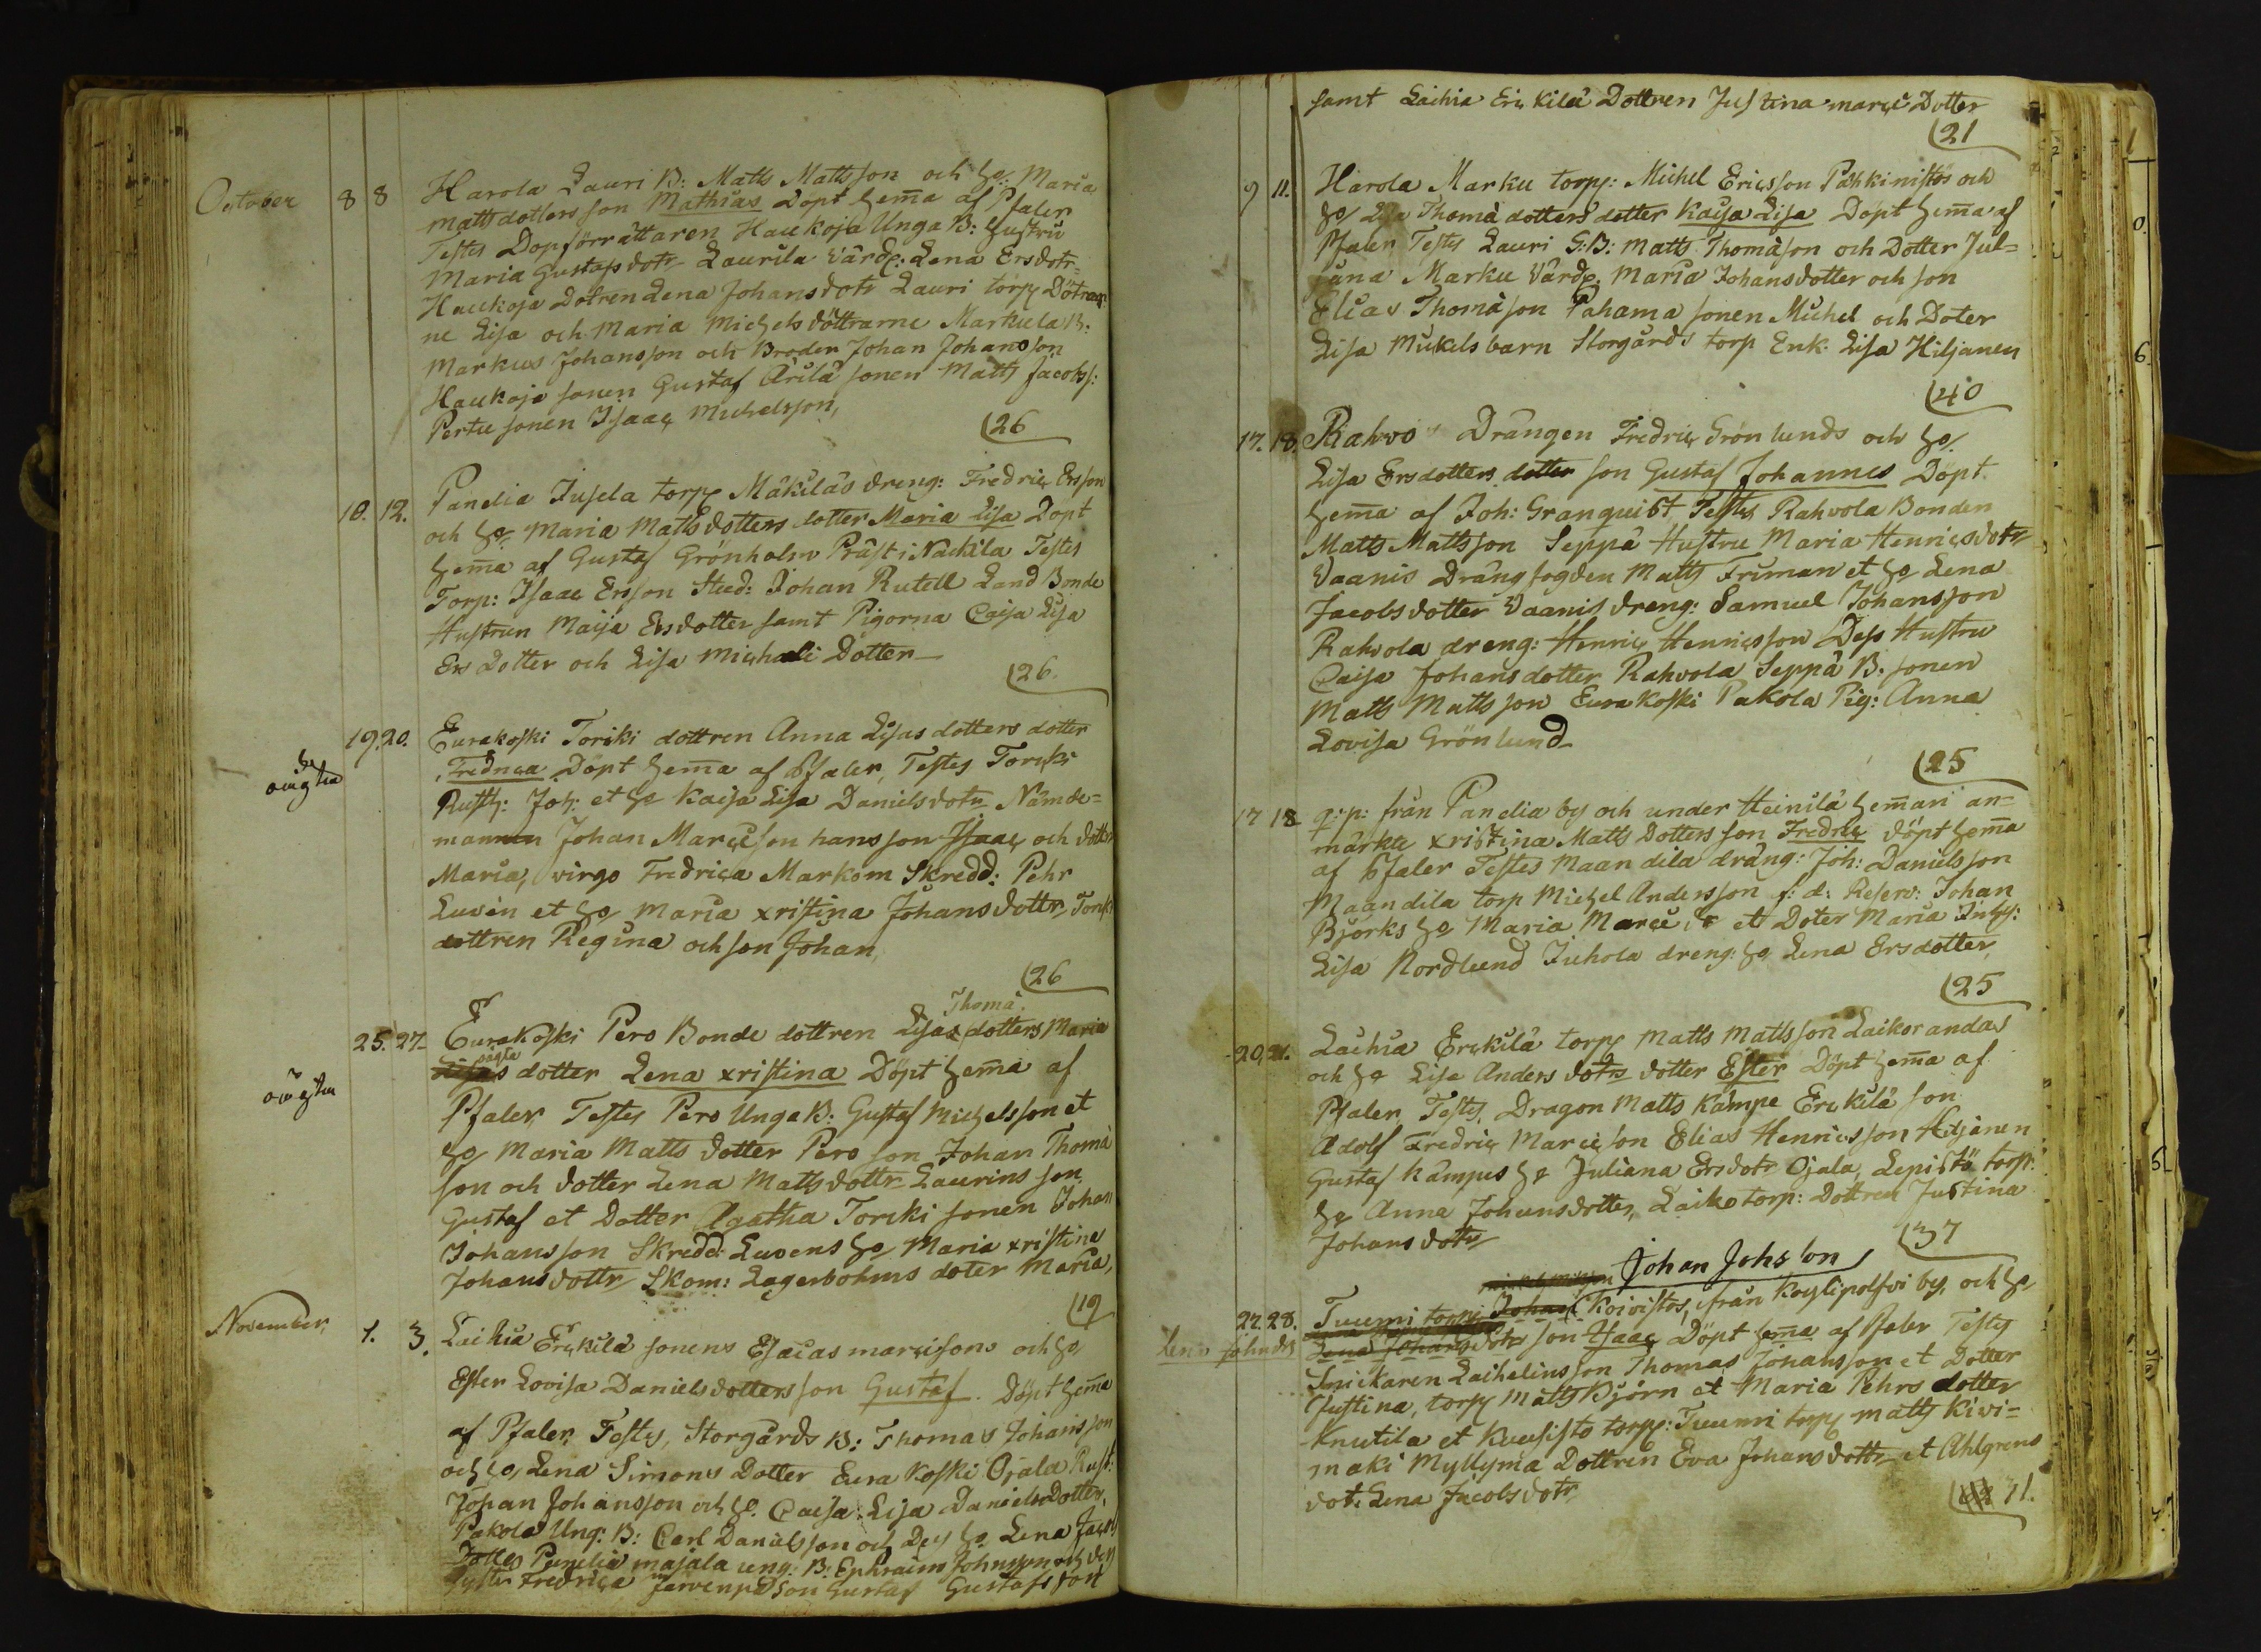 October 8 8 Harola Lauri B: Matts Mattsson och h: Maria
Mattsdotters son Mathias Döpt hema af Pfaler
Testes Dopförrättaren Haukoja Unga B: hustru
Maria Gustafsdotr Laurila Värdg: Lena Ersdotr
Haukoja Dotren Lena Johansdotr Lauri torp Döttrar
ne Lisa och Maria Michelsdöttrarne Markula B:
Markus Johansson och Broder Johan Johansson
Haukoja sonen Gustaf Arila sonen Matts Jacobs:
Pertu sonen Isaac Michelsson,
26
10. 12. Panelia Jusela torp Mäkiläs dreng: Fredric Ersson
och h Maria Mattsdotters dotter Maria Lisa Döpt
hema af Gustaf Grönholm Präst i Nackila Testes
Torp: Isaac Ersson Stud: Johan Rutell Land Bonde
Hustrun Maija Ersdotter samt Pigorna Caisa Lisa
Ers Dotter och Lisa Michali Dotter
26.
19. 20. Eurakoski Torcki dottren Anna Lisas dotters dotter
oäg ta
Fredrica Döpt hema af Pfaler, Testes Torcki
Rusth: Joh: et h Kaisa Lisa Danielsdotr Nämde-
mannen Johan Marcisson hans son Isaac och dotter
Maria, virgo Fredrica Markom Skredd: Pehr
Luven et h Maria xristina Johansdottr, Torcki
dottren Regina och son Johan,
26
Thomä
25. 27. Eurakoski Pero Bonde dottren Lisas dotters Maria
oägta
Lisas dotter Lena xristina Döpt hema af
oägta
Pfaler, Testes Pero Unga B: Gustaf Michelsson et
h Maria Matts dotter Pero son Johan Thomä
son och dotter Lena Mattsdottr Laurins son,
Gustaf et Dotter Agatha Torcki sonen Johan
Johansson Skredd: Luvens h Maria xristina
Johansdottr Skom: Lagerbohms doter Maria,
19
November, 1. 3. Laihia Erckilä sonens Esaias marcisons och h
Ester Lovisa Danielsdotters son Gustaf. Döpt hema
af Pfaler, Testes, Storgårds B: Thomas Johansson
och h, Lena Simons Dotter Eura Koski Ojala Rust:
Johan Johansson och h. Caisa Lisa Danielsdotter,
Pakola Ung: B: Carl Danielsson och Des h Lena Jacobs
Dotter Panelia majala ung: B: Ephraim Johnsson och des
syster Fredrica Järvenpä son Gustaf Gustafsson
samt Laihia Erckilä Dottren Justina marci Dotter
21
9 11. Harola Marku torp: Michel Ericsson Pähkinistös och
h Lisa Thomä dotters dotter Kaisa Lisa Döpt hema af
Pfaler Testes Lauri G: B: Matts Thomäson och Dotter Jul-
jana Marku Värdg. Maria Johansdotter och son
Elias Thomäson Pahama sonen Michel och Doter
Lisa Mickels barn Storgårds torp Enk: Lisa Hiljanen
40
17. 18. Rahvo Drängen Fredric Grönlunds och h
Lisa Ersdotters dotter son Gustaf Johannes Döpt
hema af Joh: Granquist Testes Rahvola Bonden
Matts Mattsson Seppä Hustru Maria Henricsdotr
Vaanis Drängfogden Matts Friman et h Lena
Jacobsdotter Vaanis dreng: Samuel Johansson
Rahvola dreng: Henric Henricsson Dess Hustru
Caisa Johansdotter Rahvola Seppä B. sonen
Matts Mattsson Eurakoski Pakola Pig: Anna
Lovisa Grönlund
25
17 18 q: p: från Panelia by och under Heinilä heman an-
märkte xristina Matts Dotters son Fredric döpt hema
af Pfaler Testes Maandila dräng: Joh: Danielsson
Maandila torp Michel Andersson f: d: Reserv: Johan
Björks h Maria Marci, et Doter Maria
Lisa Nordlund Juhola dreng: h Lena Ersdotter,
25
20, 21. Laihia Erckilä torp Matts Mattsson Laikorandas
och h Lisa Anders dotrs dotter Ester Döpt hema af
Pfaler, Testes, Dragon Matts Kämpe Erckilä son
Adolf Fredric Marcisson Elias Henricsson Hiljanen
Gustaf Kämpes h Juliana Ersdotr Ojala, Lepistö torp:
h Anna Johansdotter, Laiko torp: Dottren Justina
Johansdotr
37
Johan Johsson
27. 28. Tuumi torp Johan Koivistos, från Koylipolfvi by, och h
Lena Johnds Lena Johansdotr son Isaac Döpt hema af Pfaler Testes
Snickaren Laihelins son Thomas Johansson et Dotter
Justina, torp Matts Björn et Maria Pehrs dotter
Knutila et Kuusisto torp: Tuumi torp matts Kivi-
maki Myllymä Dottren Eva Johansdottr et Ahlgrens
dotr Lena Jacobsdotr
11.